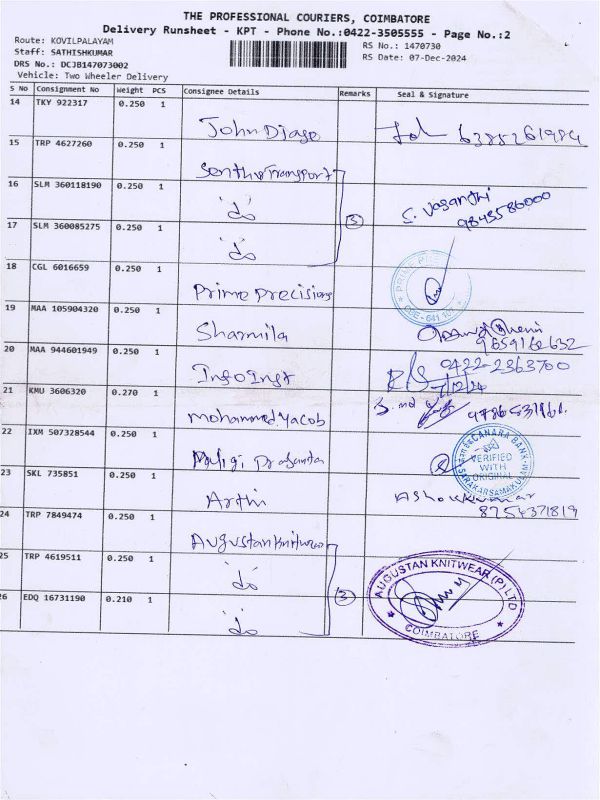 THE PROFESSIONAL COURIERS, COIMBATORE
Delivery Runsheet - KPT - Phone No.:0422-3505555 - Page No.:2
Route: KOVILPALAYAM
RS No.: 1470730
Staff: SATHISHKUMAR
RS Date: 07-Dec-2024
DRS No.: DCJB147073002
Vehicle: Two Wheeler Delivery
S No Consignment No Weight PCS Consignee Details Remarks Seal & Signature
14 TKY 922317 0.250 1
John Diago 6385261984
15 TRP 4627260 0.250 1
Senthur Transport
16 SLM 360118190 0.250 1
do 3 S. Vasanthi
9843586000
17 SLM 360085275 0.250 1
do
18 CGL 6016659 0.250 1
Prime Precisions
19 MAA 105904320 0.250 1
Sharmila
9659162632
20 MAA 944601949 0.250 1
Info Inst 0422-2363700
7/12/24
21 KMU 3606320 0.270 1
Mohammed Yacob
22 IXM 507328544 0.250 1
CANARA BANK
VERIFIED
WITH
ORIGINAL
SARAKARSAMAKULAM
23 SKL 735851 0.250 1
Arthi Ashokkumar
8254371819
24 TRP 7849474 0.250 1
Augustan Knitwear
25 TRP 4619511 0.250 1
do
26 EDQ 16731190 0.210 1
do 3
AUGUSTAN KNITWEAR (P) LTD
COIMBATORE